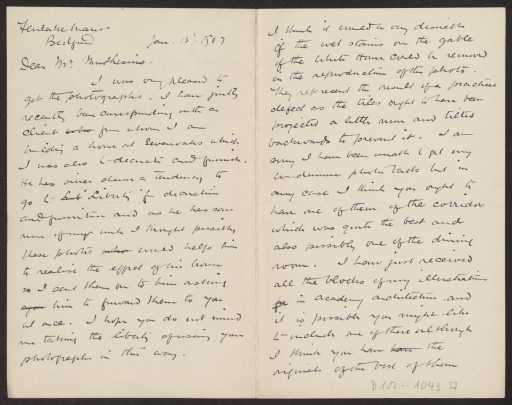 Bedford
Jan. 13 1907
Dear Mr. Muthesius.
I was very pleased to
get the photographs. I have just
recently been corresponding with a
client for whom I am
building a house at Sevenoaks which
I was also to decorate and furnish.
He has since shown a tendency to
go to Liberty for decoration
and furniture and as he has seen
I thought possibly
these photos would help him
to realise the effect of his house
so I sent them on to him asking
him to forward them to you
at once. I hope you do not mind
me taking the liberty of using your
photographs in this way.
I think it would be very desirable
if the wet stains on the gable
of the White House could be removed
in the reproduction of the photo.
They represent the result of a practical
defect as the tiles ought to have been
projected a little more and tilted
backwards to prevent it. I am
sorry I have been unable to get my
photos back but in
any case I think you ought to
have one of them of the corridor
which was quite the best and
also possibly one of the dining
room. I have just received
all the blocks of my illustrations
in academy architecture and
it is possible you might like
to include one of these although
I think you have the
originals of the best of them